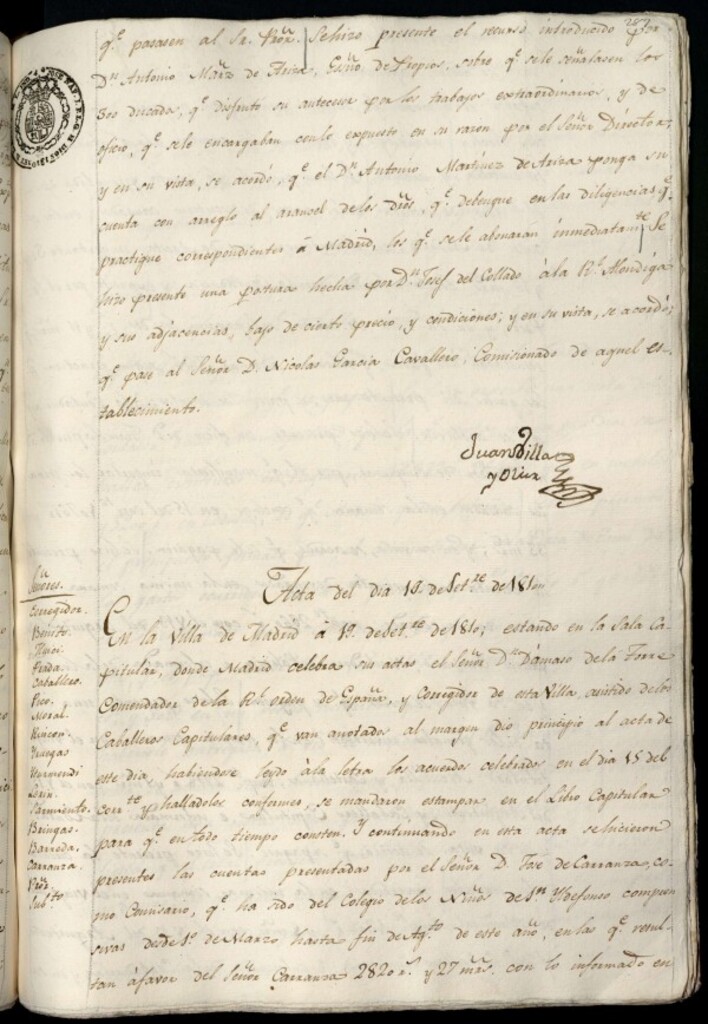 q.e pasasen al Sr. Pror. Se hizo presente el recurso introducido por
Dn. Antonio Marnz de Ariza, Esno. de Propios, sobre q.e se le señalasen los
300 ducados, q.e disfrutó su antecesor por los trabajos extraordinarios, y de
oficio, q.e se le encargaban con lo expuesto en su razon por el Señor Director;
y en su vista, se acordó, q.e el Dn. Antonio Martinez de Ariza ponga su
cuenta con arreglo al arancel de los dros, q.e debengue en las diligencias q.e
practique correspondientes à Madrid, los q.e se le abonaran inmediatam.te Se
hizo presente una postura hecha por Dn. Josef del Collado à la Rl. Alondiga
y sus adjacencias, bajo de cierto precio, y condiciones; y en su vista, se acordó;
q.e pase al Señor D. Nicolas Garcia Cavallero, Comisionado de aquel es-
tablecimiento.
Juan Villa
y Olier
Acta del dia 19 de Set.re de 1810
Señores.
Corregidor.
Benito.
Prada.
Caballero.
Pico.
Moral.
Rincon.
Hurmendi
Leria.
Sarmiento.
Bringas.
Barreda.
Carranza.
Pror.
Sub.to
En la Villa de Madrid à 19 de Set.re de 1810; estando en la Sala Ca-
pitular, donde Madrid celebra sus actas el Señor Dn. Dámaso de la Torre
Comendador de la Rl. orden de España, y Corregidor de esta Villa, asistido de los
Caballeros Capitulares, q.e van anotados al margen dio principio al acta de
este dia, habiendose leydo à la letra los acuerdos celebrados en el dia 15 del
corr.te y halladolos conformes, se mandaron estampar en el Libro Capitular
para q.e en todo tiempo consten. Y continuando en esta acta se hicieron
presentes las cuentas presentadas por el Señor D. Jose de Carranza, co-
mo Comisario, q.e ha sido del Colegio de los Niños de Sn. Ildefonso compren-
sivas desde 1º de Marzo hasta fin de Ag.to de este año, en las q.e resul-
tan à favor del Señor Carranza 2820 rs. y 27 mrs. con lo informado en